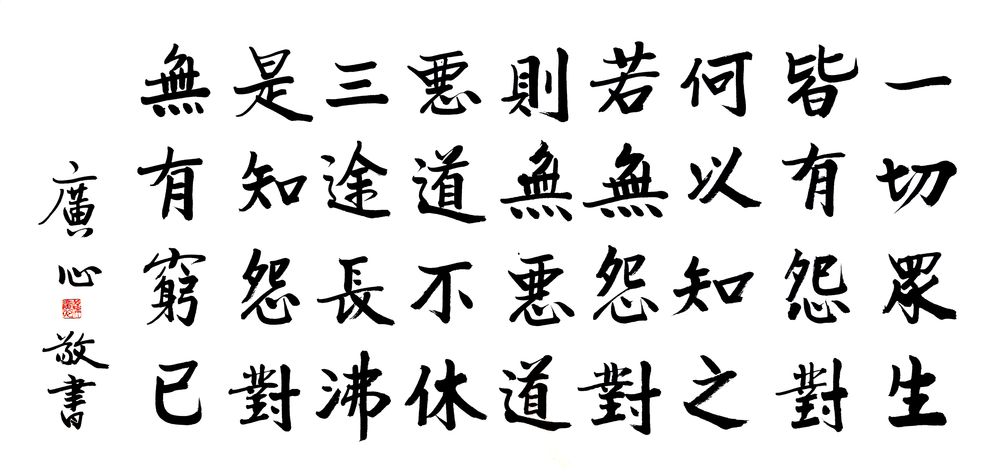 一切眾生
皆有怨對
何以知之
若無怨對
則無惡道
惡道不休
三途長沸
是知怨對
無有窮已
廣心敬書